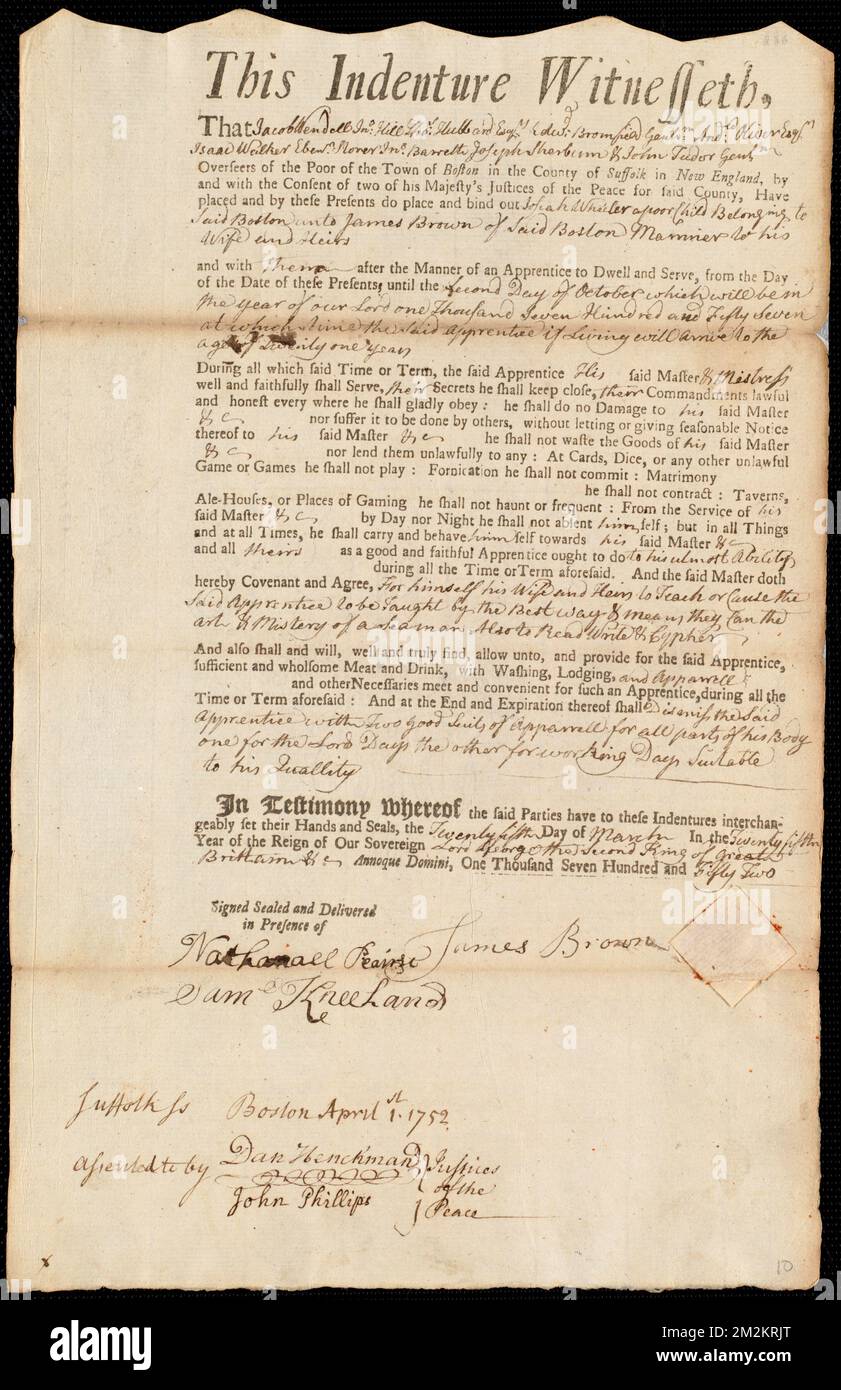 This Indenture Witnesseth,
That Jacob Wendell Jno. Hill Thos. Hubbard Esqrs. Edwd. Bromfield Gentm. Andw. Oliver Esqr.
Isaac Walker Ebenr. Storer Jno. Barrett Joseph Sherburn & John Tudor Gentm
Overseers of the Poor of the Town of Boston in the County of Suffolk in New England, by
and with the Consent of two of his Majesty's Justices of the Peace for said County, Have
placed and by these Presents do place and bind out Josiah Wheeler a poor Child Belonging to
Said Boston unto James Brown of Said Boston Marriner to his
Wife and Heirs
and with them after the Manner of an Apprentice to Dwell and Serve, from the Day
of the Date of these Presents, until the Second Day of October which will be in
the year of our Lord one Thousand Seven Hundred and Fifty Seven
at which time the said apprentice if Living will arrive to the
age of Twenty one years
During all which said Time or Term, the said Apprentice His said Master & Mistress
well and faithfully shall Serve, their Secrets he shall keep close, their Commandments lawful
and honest every where he shall gladly obey : he shall do no Damage to his said Master
&c nor suffer it to be done by others, without letting or giving seasonable Notice
thereof to his said Master &c he shall not waste the Goods of his said Master
&c nor lend them unlawfully to any : At Cards, Dice, or any other unlawful
Game or Games he shall not play : Fornication he shall not commit : Matrimony
he shall not contract : Taverns,
Ale-Houses, or Places of Gaming he shall not haunt or frequent : From the Service of his
said Master &c by Day nor Night he shall not absent himself; but in all Things
and at all Times, he shall carry and behave himself towards his said Master &c
and all theirs as a good and faithful Apprentice ought to do to his utmost Ability
during all the Time or Term aforesaid. And the said Master doth
hereby Covenant and Agree, For himself his Wife and Heirs to Teach or Cause the
Said Apprentice to be Taught by the Best way & means they Can the
art & Mistery of a Seaman Also to Read Write & Cypher
And also shall and will, well and truly find, allow unto, and provide for the said Apprentice,
sufficient and wholsome Meat and Drink, with Washing, Lodging, and Apparrell
and other Necessaries meet and convenient for such an Apprentice, during all the
Time or Term aforesaid : And at the End and Expiration thereof shall Dismiss the Said
Apprentice with Two good Suits of Apparrell for all parts of his Body
one for the Lord Days the other for working Days Suitable
to his Quallity
In Testimony whereof the said Parties have to these Indentures interchan-
geably set their Hands and Seals, the Twenty fifth Day of March In the Twenty fifth
Year of the Reign of Our Sovereign Lord George the Second King of Great
Brittain &c Annoque Domini, One Thousand Seven Hundred and Fifty Two
Signed Sealed and Delivered
in Presence of
Nathanaell Peirse James Brown
Saml. Kneeland
Suffolk Ss Boston April 1st. 1752
Assented to by Dan Henchman Justices
of the
John Phillips Peace
10
alamy
Image ID: 2M2KRJT
www.alamy.com